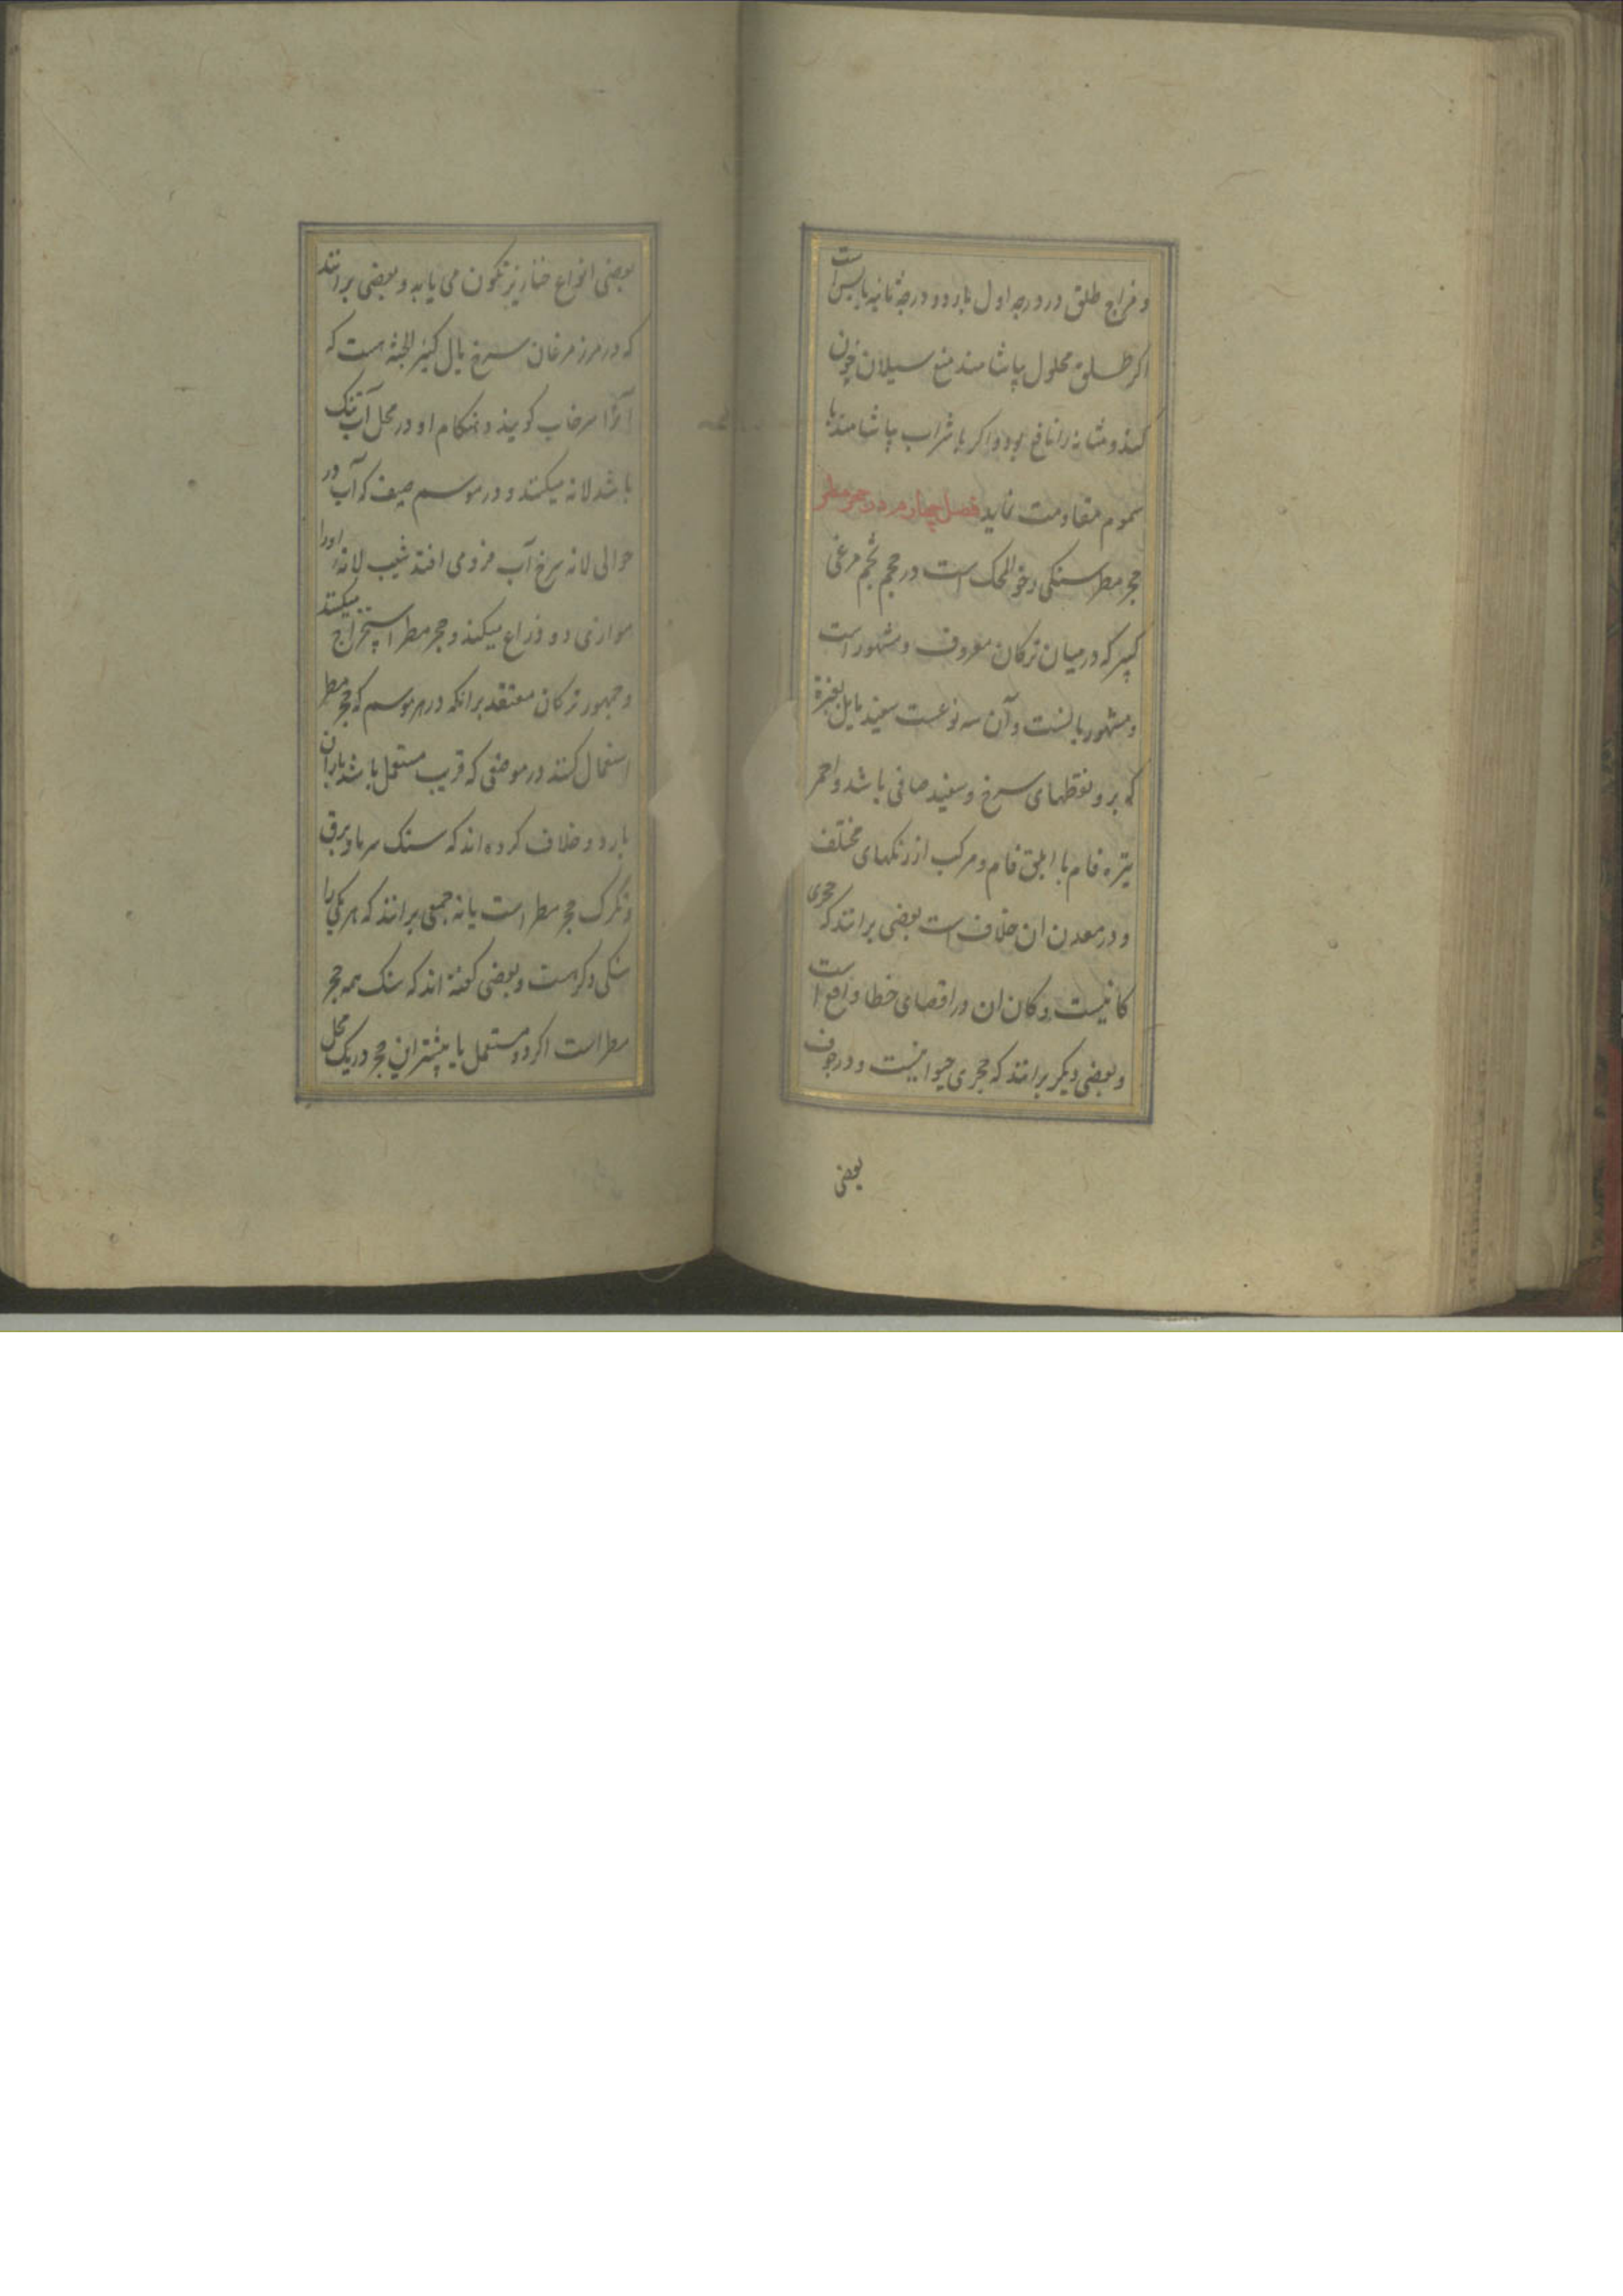 و مزاج طلق در درجه اول بارد و در درجهٔ ثانیه یابس است
اکر طلق محلول بیاشامند منع سیلان خون
کند و مثانه را نافع بود و اکر با شراب بیاشامند با
سموم مقاومت نماید فصل چهارم در حجر مطر
حجر مطر سنکی رخو المحک است در حجم تخم مرغی
کبیر که در میان ترکان معروف و مشهور است
و مشهور بانست و آن سه نوعست سفید مایل بغبرة
که برو نقطهای سرخ و سفید صافی باشد و احمر
تیره فام یا ابلق فام و مرکب از رنکهای مختلف
و در معدن ان خلاف است بعضی برانند که حجری
کانیست و کان ان در اقصای خطا واقع است
و بعضی دیکر برانند که حجری حیوانیست و در جوف
بعضی
بعضی انواع خنازیر تکون می یابد و بعضی برانند
که در مرز مرغان سرخ بال کبیر الجثه هست که
آنرا سرخاب کویند و هنکام او در محل آب تنک
باشد لانه میکند و در موسم صیف که آب در
حوالی لانه سرخ آب فرو می افتد شیب لانه اورا
موازی دو ذراع میکنند و حجر مطر استخراج میکنند
و جمهور ترکان معتقد برانکه در هر موسم که حجر مطر
استعمال کنند در موضعی که قریب مستعمل باشد باران
بارد و خلاف کرده اند که سنک سرما و برق
و تکرک حجر مطر است یا نه جمعی برانند که هر یکی را
سنکی دکر هست و بعضی کفته اند که سنک همه حجر
مطر است اکر دو مستعمل یا بیشتر این حجر در یک محل